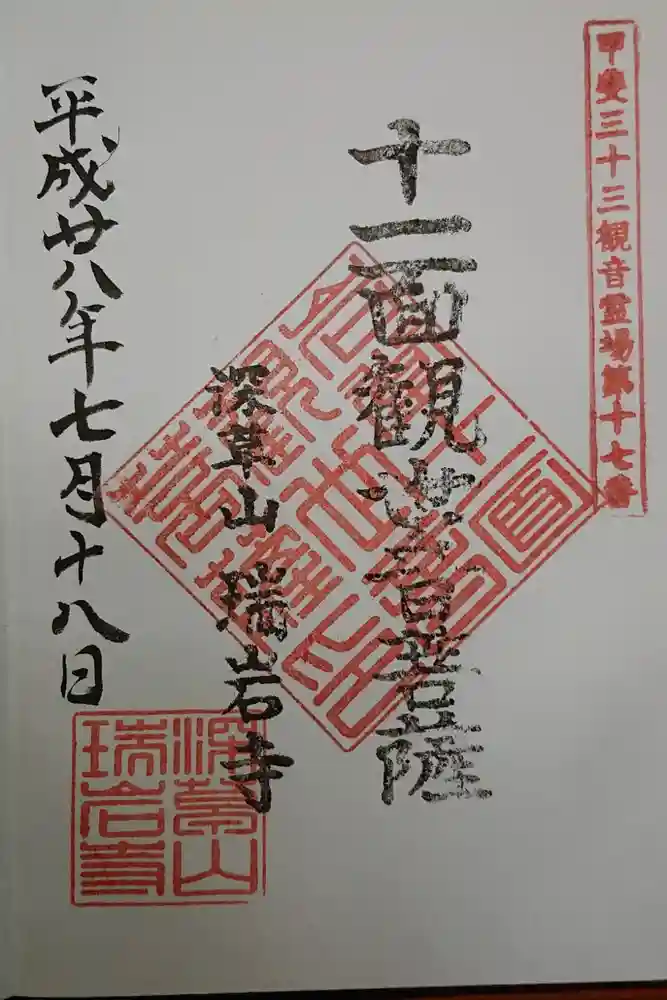 甲斐三十三観音霊場第十七番
十一面觀世音菩薩
深草山 瑞岩寺
平成廿八年七月十八日
深草山
瑞岩寺